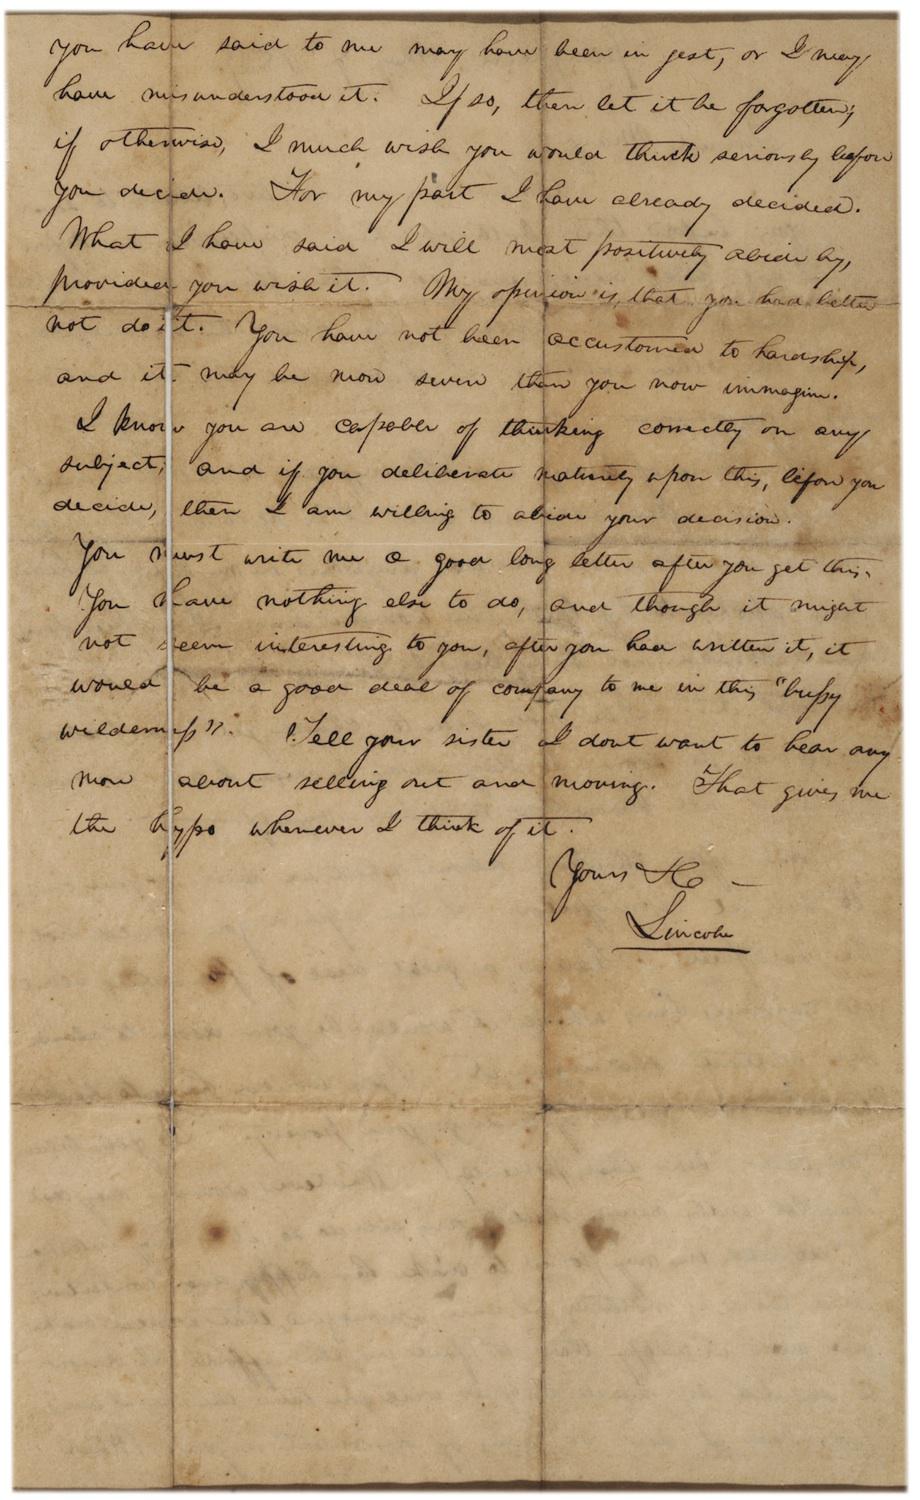 you have said to me may have been in jest, or I may
have misunderstood it. If so, then let it be forgotten;
if otherwise, I much wish you would think seriously before
you decide. For my part I have already decided.
What I have said I will most positively abide by,
provided you wish it. My opinion is, that you had better
not do it. You have not been accustomed to hardship,
and it may be more severe than you now immagine.
I know you are capable of thinking correctly on any
subject; and if you deliberate maturely upon this, before you
decide, then I am willing to abide your decision.
You must write me a good long letter after you get this.
You have nothing else to do, and though it might
not seem interesting to you, after you had written it, it
would be a good deal of company to me in this "busy
wilderness". Tell your sister I dont want to hear any
more about selling out and moving. That gives me
the hypo whenever I think of it.
Yours &c —
Lincoln